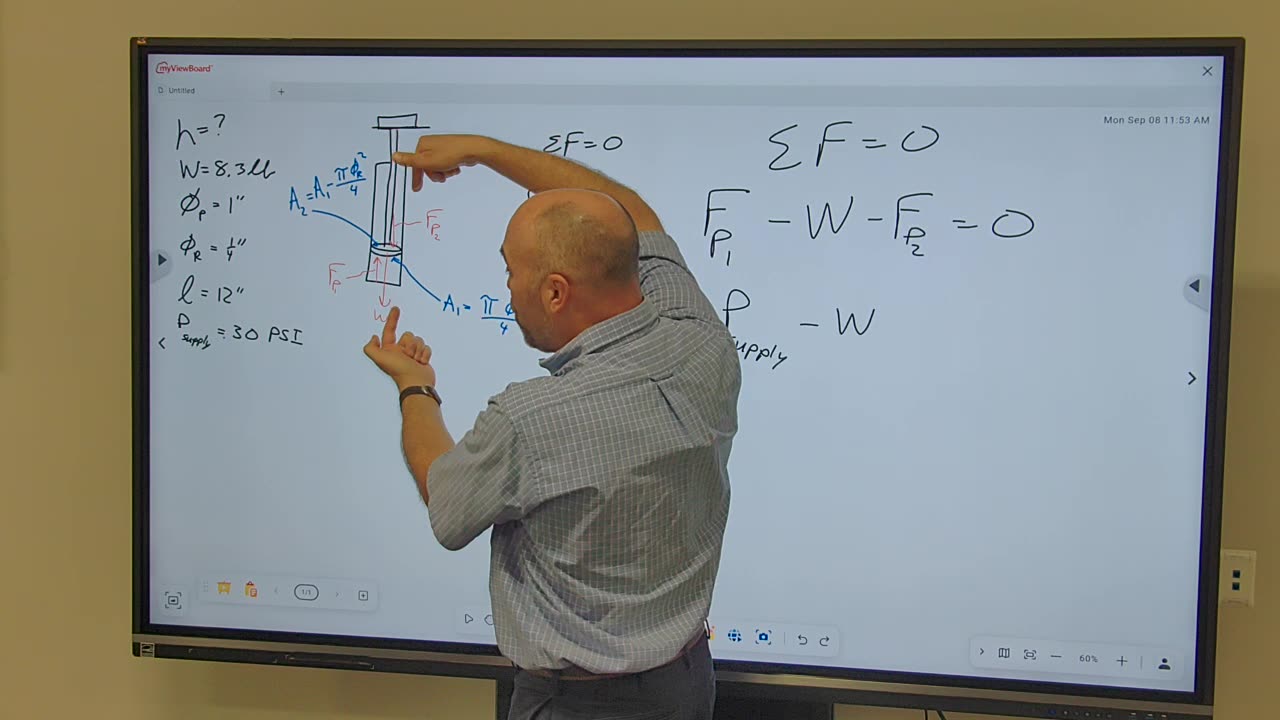 myViewBoard
Untitled
Mon Sep 08 11:53 AM
h=?
W=8.3 lb
ϕP = 1"
ϕR = 1/4"
l = 12"
Psupply = 30 PSI
A2=A1-πϕR²/4
FP2
FP1
W
A1= πϕ/4
ΣF=0
ΣF=0
FP1 - W - FP2 = 0
P - W
supply
1/1
60%